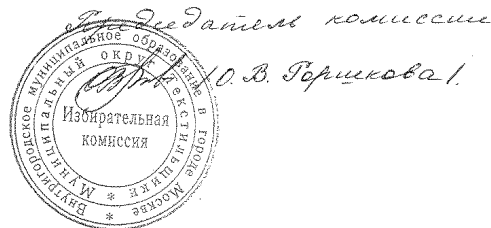 Председатель комиссии
/О. В. Горшкова/.
Внутригородское муниципальное образование в городе Москве *
Муниципальный округ Текстильщики *
Избирательная
комиссия